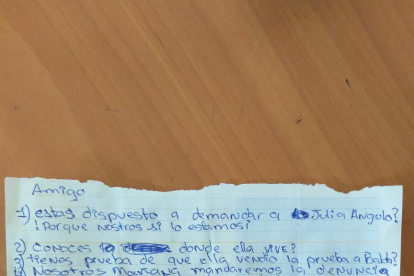 Amigo
1) estas dispuesto a demandar a Julia Angulo?
¡Porque nostros si lo estamos!
2) CONOCES donde ella VIVE?
3) tienes prueba de que ella vendio la prueba a Baldo?
4) Nosotros Mañana mandaremos la denuncia